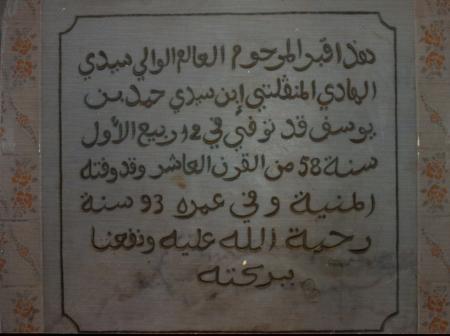 هذا قبر المرحوم العالم الوالي سيدي
الهادي المنڨلتي إبن سيدي حمد بن
يوسف قد توفي في 12 ربيع الأول
سنة 58 من القرن العاشر وقد وفته
المنية و في عمره 93 سنة
رحمة الله عليه ونفعنا
ببركته